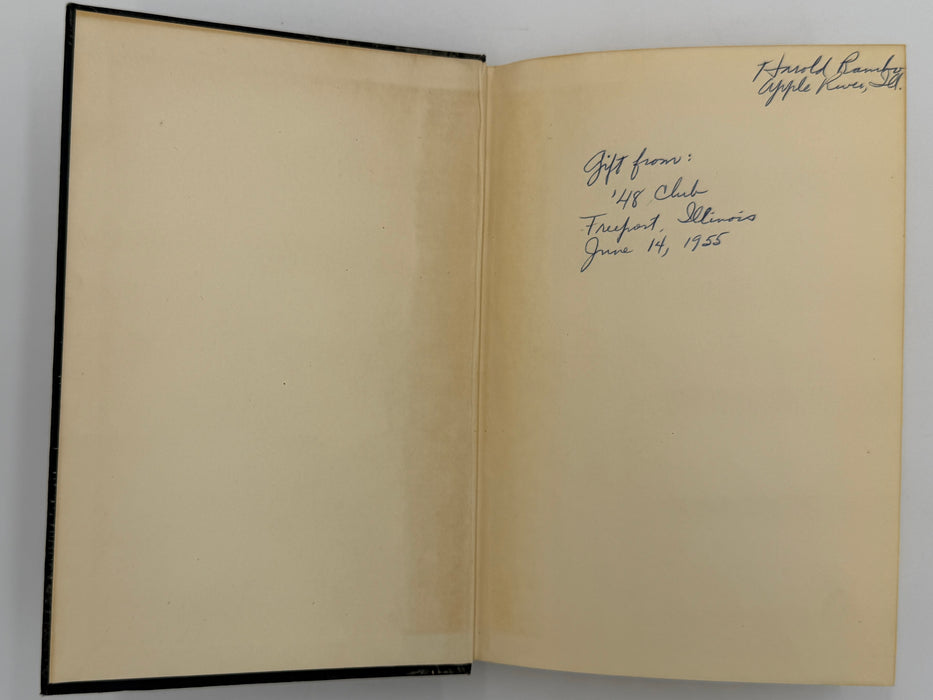 Harold Rambo
Apple River, Ill.
Gift from:
'48 Club
Freeport, Illinois
June 14, 1955